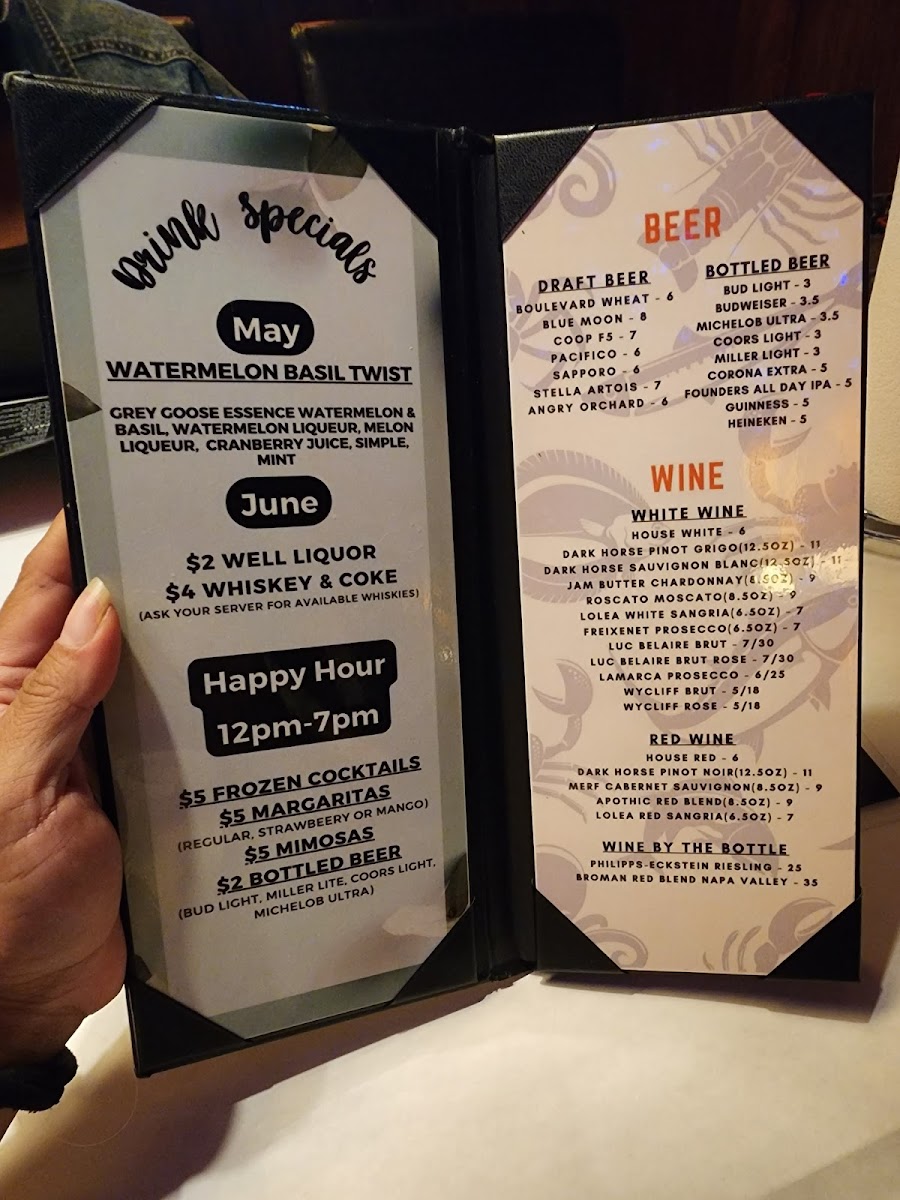 Drink Specials
May
WATERMELON BASIL TWIST
GREY GOOSE ESSENCE WATERMELON &
BASIL, WATERMELON LIQUEUR, MELON
LIQUEUR, CRANBERRY JUICE, SIMPLE,
MINT
June
$2 WELL LIQUOR
$4 WHISKEY & COKE
(ASK YOUR SERVER FOR AVAILABLE WHISKIES)
Happy Hour
12pm-7pm
$5 FROZEN COCKTAILS
$5 MARGARITAS
(REGULAR, STRAWBEERY OR MANGO)
$5 MIMOSAS
$2 BOTTLED BEER
(BUD LIGHT, MILLER LITE, COORS LIGHT,
MICHELOB ULTRA)
BEER
DRAFT BEER
BOULEVARD WHEAT - 6
BLUE MOON - 8
COOP F5 - 7
PACIFICO - 6
SAPPORO - 6
STELLA ARTOIS - 7
ANGRY ORCHARD - 6
BOTTLED BEER
BUD LIGHT - 3
BUDWEISER - 3.5
MICHELOB ULTRA - 3.5
COORS LIGHT - 3
MILLER LIGHT - 3
CORONA EXTRA - 5
FOUNDERS ALL DAY IPA - 5
GUINNESS - 5
HEINEKEN - 5
WINE
WHITE WINE
HOUSE WHITE - 6
DARK HORSE PINOT GRIGO(12.5OZ) - 11
DARK HORSE SAUVIGNON BLANC(12.5OZ) - 11
JAM BUTTER CHARDONNAY(8.5OZ) - 9
ROSCATO MOSCATO(8.5OZ) - 9
LOLEA WHITE SANGRIA(6.5OZ) - 7
FREIXENET PROSECCO(6.5OZ) - 7
LUC BELAIRE BRUT - 7/30
LUC BELAIRE BRUT ROSE - 7/30
LAMARCA PROSECCO - 6/25
WYCLIFF BRUT - 5/18
WYCLIFF ROSE - 5/18
RED WINE
HOUSE RED - 6
DARK HORSE PINOT NOIR(12.5OZ) - 11
MERF CABERNET SAUVIGNON(8.5OZ) - 9
APOTHIC RED BLEND(8.5OZ) - 9
LOLEA RED SANGRIA(6.5OZ) - 7
WINE BY THE BOTTLE
PHILIPPS-ECKSTEIN RIESLING - 25
BROMAN RED BLEND NAPA VALLEY - 35